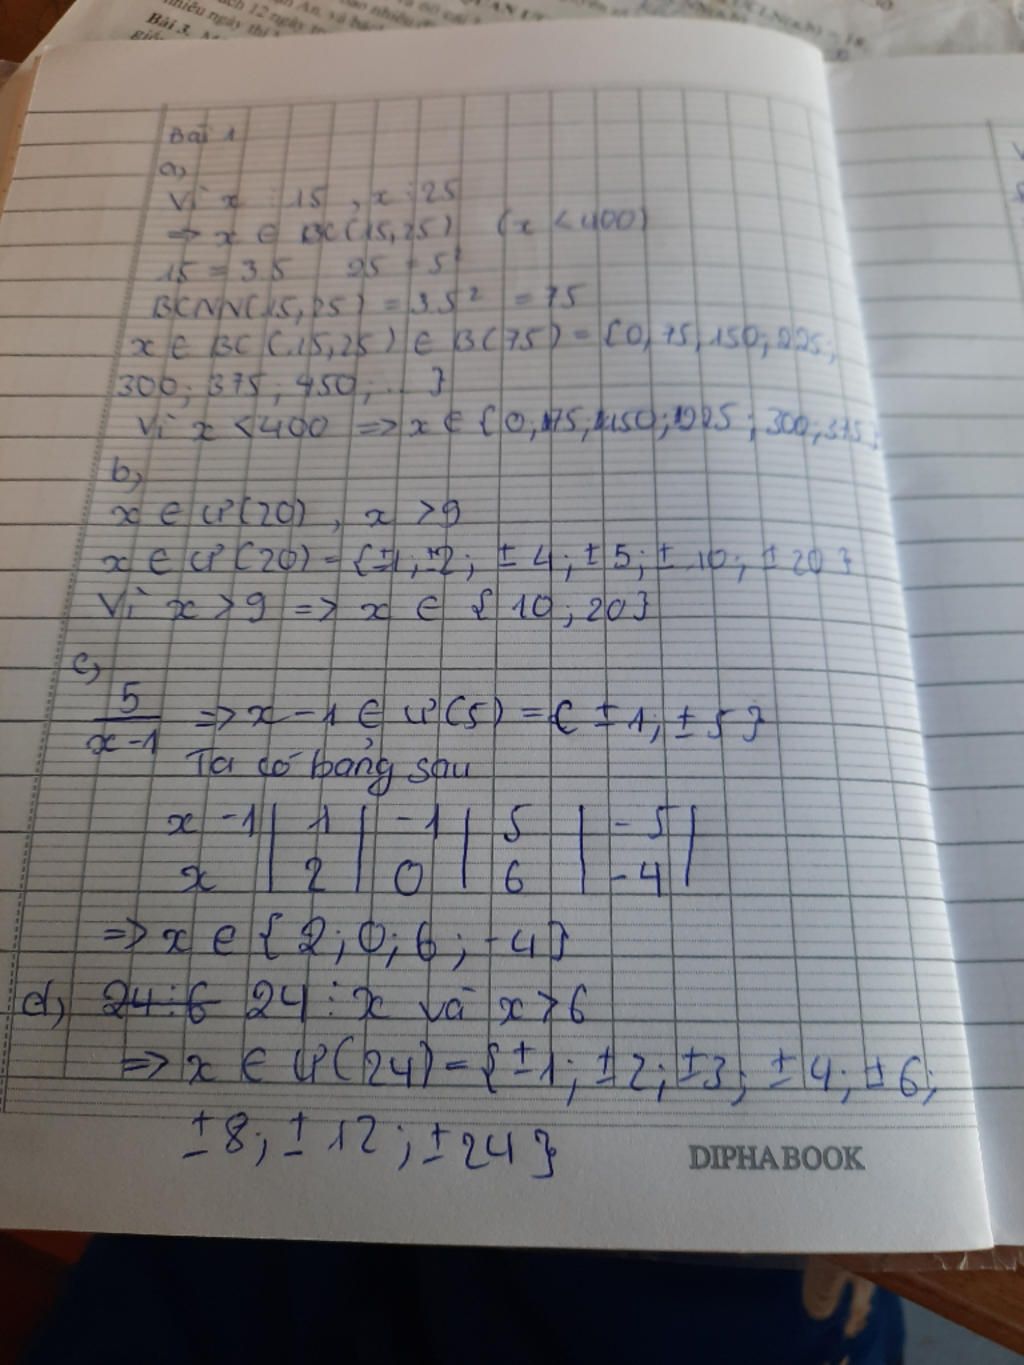 nhiêu ngày thì
Bài 3.
Bài 1
a,
Vì x ⋮ 15 , x ⋮ 25
=> x ∈ BC(15,25) (x < 400)
15 = 3.5 25 = 5²
BCNN(15,25) = 3.5² = 75
x ∈ BC(15,25) ∈ B(75) = {0, 75, 150; 225;
300; 375; 450; ... }
Vì x < 400 => x ∈ {0, 75, 150; 225; 300; 375}
b,
x ∈ Ư(20) , x > 9
x ∈ Ư(20) = {±1; ±2; ±4; ±5; ±10; ±20}
Vì x > 9 => x ∈ {10; 20}
c,
5/(x-1) => x - 1 ∈ Ư(5) = { ±1; ±5}
Ta có bảng sau
x - 1 | 1 | -1 | 5 | -5 |
x | 2 | 0 | 6 | -4 |
=> x ∈ {2; 0; 6; -4}
d, 24 ⋮ 6 24 ⋮ x và x > 6
=> x ∈ Ư(24) = {±1; ±2; ±3; ±4; ±6;
±8; ±12; ±24}
DIPHABOOK